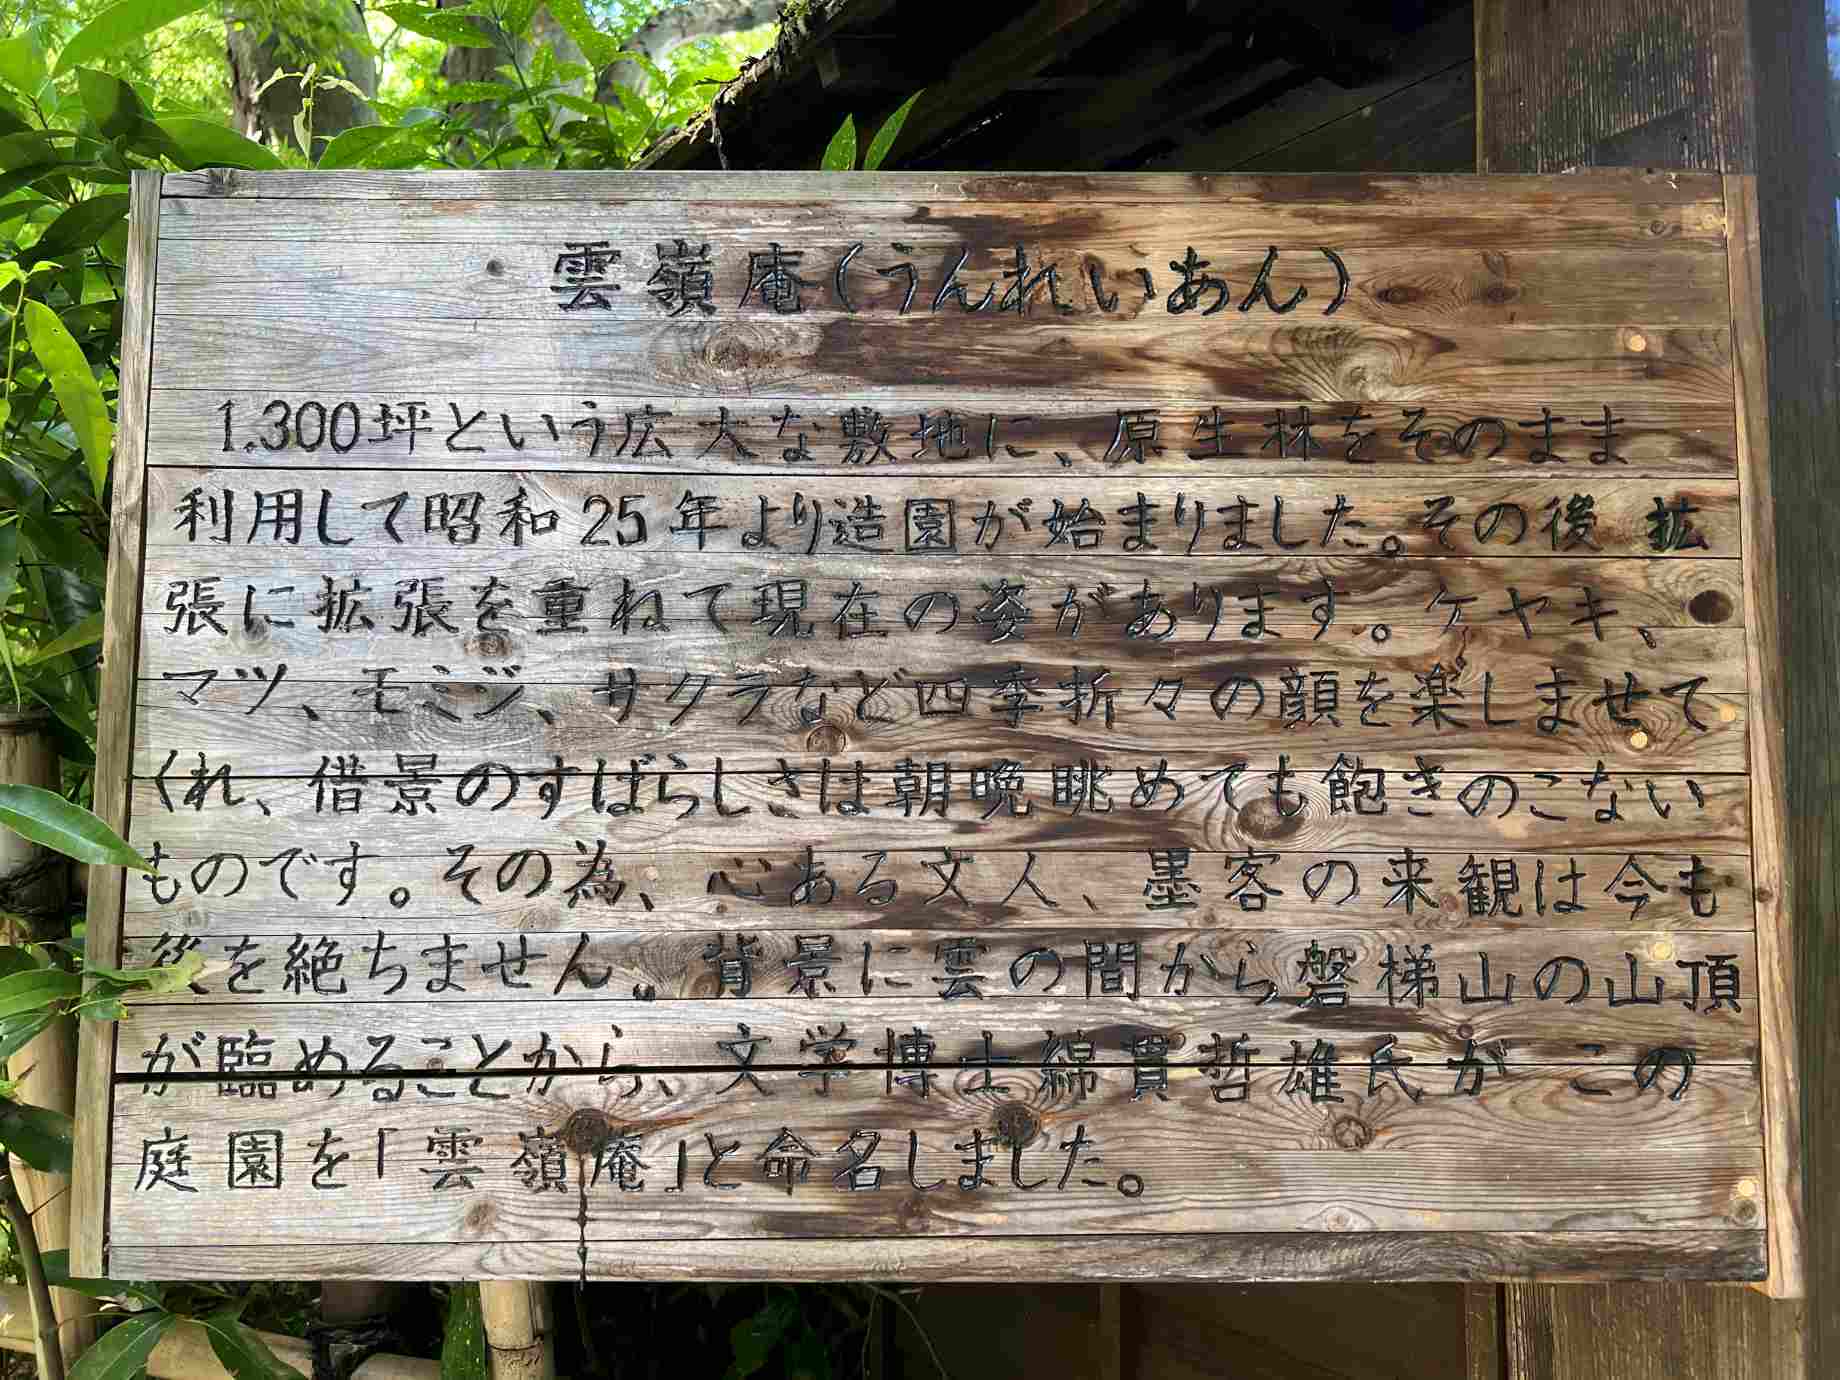 雲嶺庵(うんれいあん)
1.300坪という広大な敷地に、原生林をそのまま
利用して昭和25年より造園が始まりました。その後拡
張に拡張を重ねて現在の姿があります。ケヤキ、
マツ、モミジ、サクラなど四季折々の顔を楽しませて
くれ、借景のすばらしさは朝晩眺めても飽きのこない
ものです。その為、心ある文人、墨客の来観は今も
後を絶ちません。背景に雲の間から磐梯山の山頂
が臨めることから、文学博士綿貫哲雄氏がこの
庭園を「雲嶺庵」と命名しました。